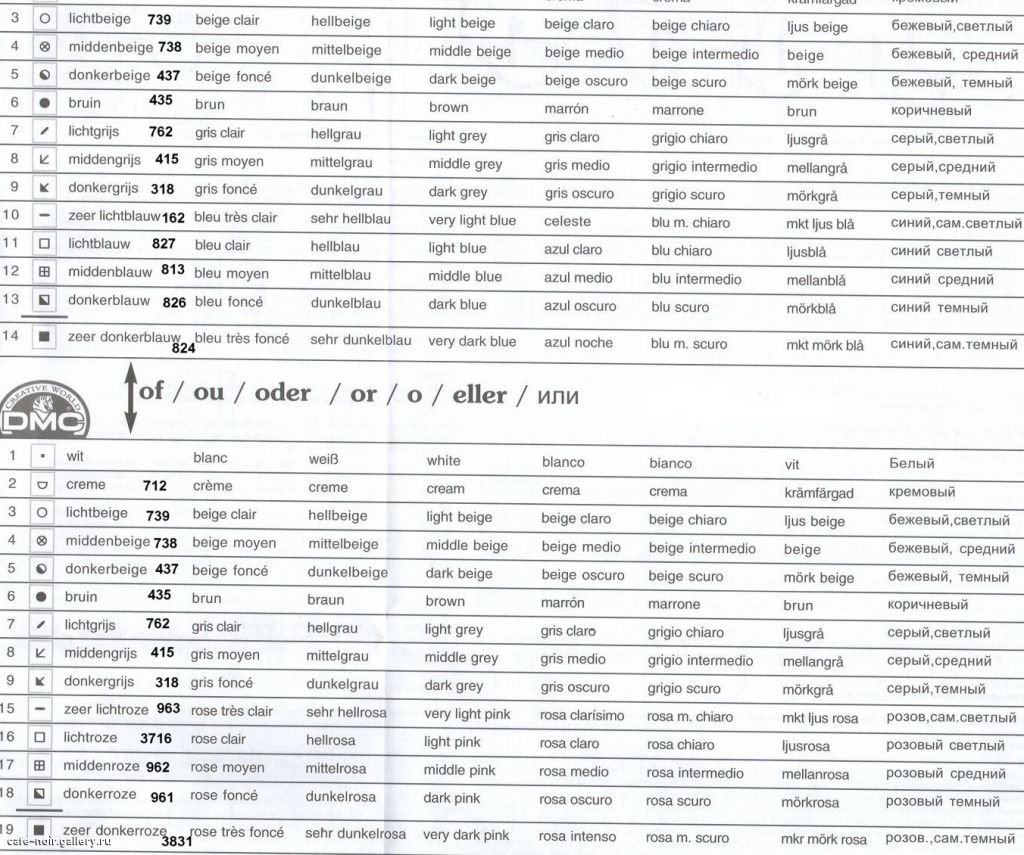 3 lichtbeige 739 beige clair hellbeige light beige beige claro beige chiaro ljus beige бежевый,светлый
4 middenbeige 738 beige moyen mittelbeige middle beige beige medio beige intermedio beige бежевый, средний
5 donkerbeige 437 beige foncé dunkelbeige dark beige beige oscuro beige scuro mörk beige бежевый, темный
6 bruin 435 brun braun brown marrón marrone brun коричневый
7 lichtgrijs 762 gris clair hellgrau light grey gris claro grigio chiaro ljusgrå серый,светлый
8 middengrijs 415 gris moyen mittelgrau middle grey gris medio grigio intermedio mellangrå серый,средний
9 donkergrijs 318 gris foncé dunkelgrau dark grey gris oscuro grigio scuro mörkgrå серый,темный
10 zeer lichtblauw 162 bleu très clair sehr hellblau very light blue celeste blu m. chiaro mkt ljus blå синий,сам.светлый
11 lichtblauw 827 bleu clair hellblau light blue azul claro blu chiaro ljusblå синий светлый
12 middenblauw 813 bleu moyen mittelblau middle blue azul medio blu intermedio mellanblå синий средний
13 donkerblauw 826 bleu foncé dunkelblau dark blue azul oscuro blu scuro mörkblå синий темный
14 zeer donkerblauw 824 bleu très foncé sehr dunkelblau very dark blue azul noche blu m. scuro mkt mörk blå синий,сам.темный
CREATIVE WORLD
DMC
of / ou / oder / or / o / eller / или
1 wit blanc weiß white blanco bianco vit Белый
2 creme 712 crème creme cream crema crema krämfärgad кремовый
3 lichtbeige 739 beige clair hellbeige light beige beige claro beige chiaro ljus beige бежевый,светлый
4 middenbeige 738 beige moyen mittelbeige middle beige beige medio beige intermedio beige бежевый, средний
5 donkerbeige 437 beige foncé dunkelbeige dark beige beige oscuro beige scuro mörk beige бежевый, темный
6 bruin 435 brun braun brown marrón marrone brun коричневый
7 lichtgrijs 762 gris clair hellgrau light grey gris claro grigio chiaro ljusgrå серый,светлый
8 middengrijs 415 gris moyen mittelgrau middle grey gris medio grigio intermedio mellangrå серый,средний
9 donkergrijs 318 gris foncé dunkelgrau dark grey gris oscuro grigio scuro mörkgrå серый,темный
15 zeer lichtroze 963 rose très clair sehr hellrosa very light pink rosa clarísimo rosa m. chiaro mkt ljus rosa розов,сам.светлый
16 lichtroze 3716 rose clair hellrosa light pink rosa claro rosa chiaro ljusrosa розовый светлый
17 middenroze 962 rose moyen mittelrosa middle pink rosa medio rosa intermedio mellanrosa розовый средний
18 donkerroze 961 rose foncé dunkelrosa dark pink rosa oscuro rosa scuro mörkrosa розовый темный
19 zeer donkerroze 3831 rose très foncé sehr dunkelrosa very dark pink rosa intenso rosa m. scuro mkr mörk rosa розов.,сам.темный
cafe-noir.gallery.ru